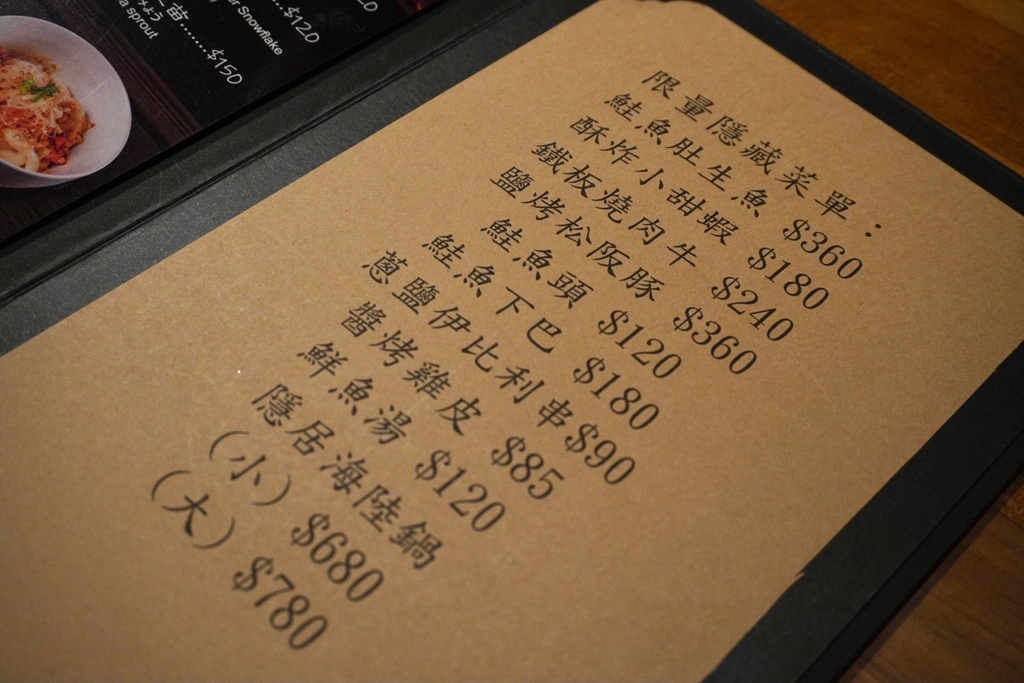 限量隱藏菜單：
鮭魚肚生魚 $360
酥炸小甜蝦 $180
鐵板燒肉牛 $240
鹽烤松阪豚 $360
鮭魚頭 $120
鮭魚下巴 $180
蔥鹽伊比利串$90
醬烤雞皮 $85
鮮魚湯 $120
隱居海陸鍋
(小) $680
(大) $780
Snowflake
$120
$150
a sprout